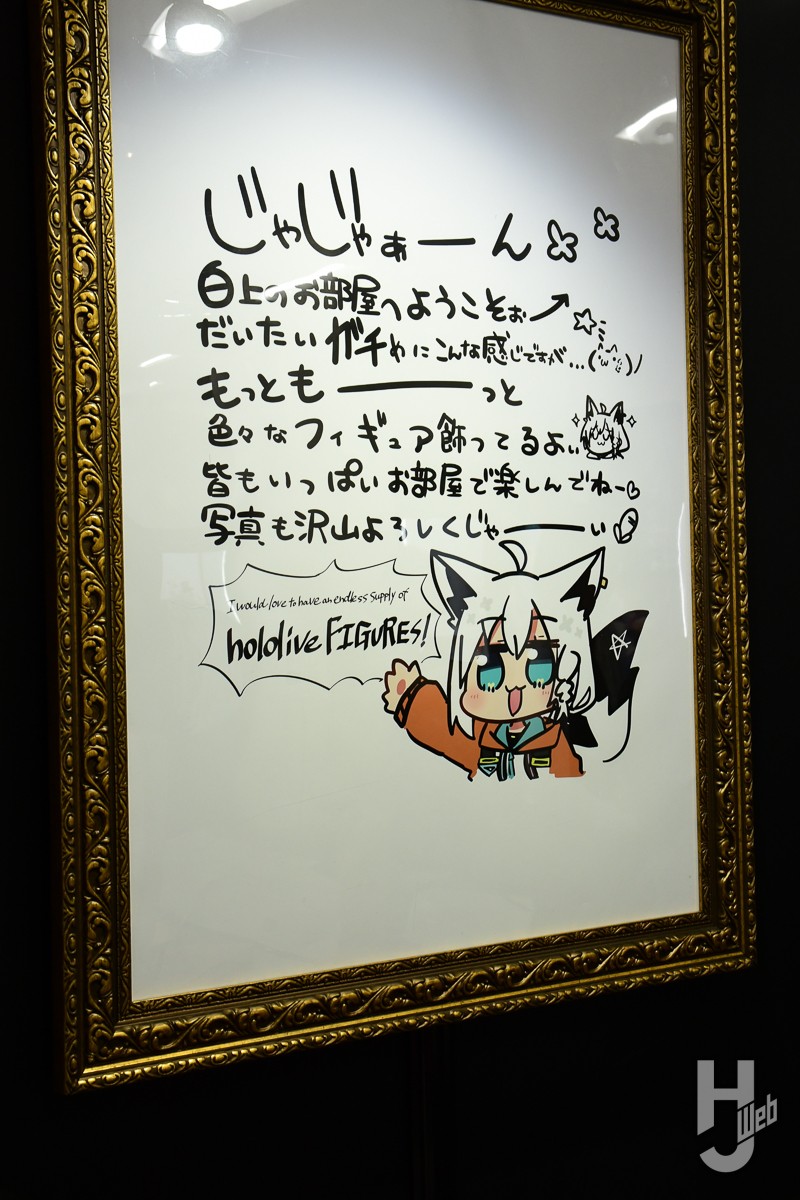 じゃじゃぁーん
白上のお部屋へようこそぉ↗
だいたいガチめにこんな感じですが…(´・ω・`)
もっともーーっと
色々なフィギュア飾ってるよぃ
皆もいっぱいお部屋で楽しんでねー♡
写真も沢山よろしくじゃーーぃ
I would love to have an endless supply of
hololive FIGURES!
HJ Web